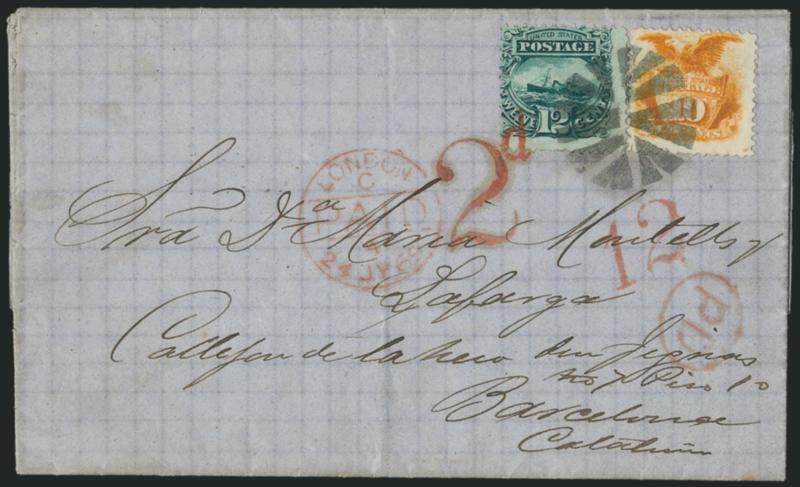 UNITED STATES
POSTAGE
TWELVE 12 CENTS
10
LONDON
C
PAID
24 JY 69
2d
12
PD
Sra Da Maria Montells y
Lafarga
Callejon de
Piso 1o
Barcelona
Cataluña